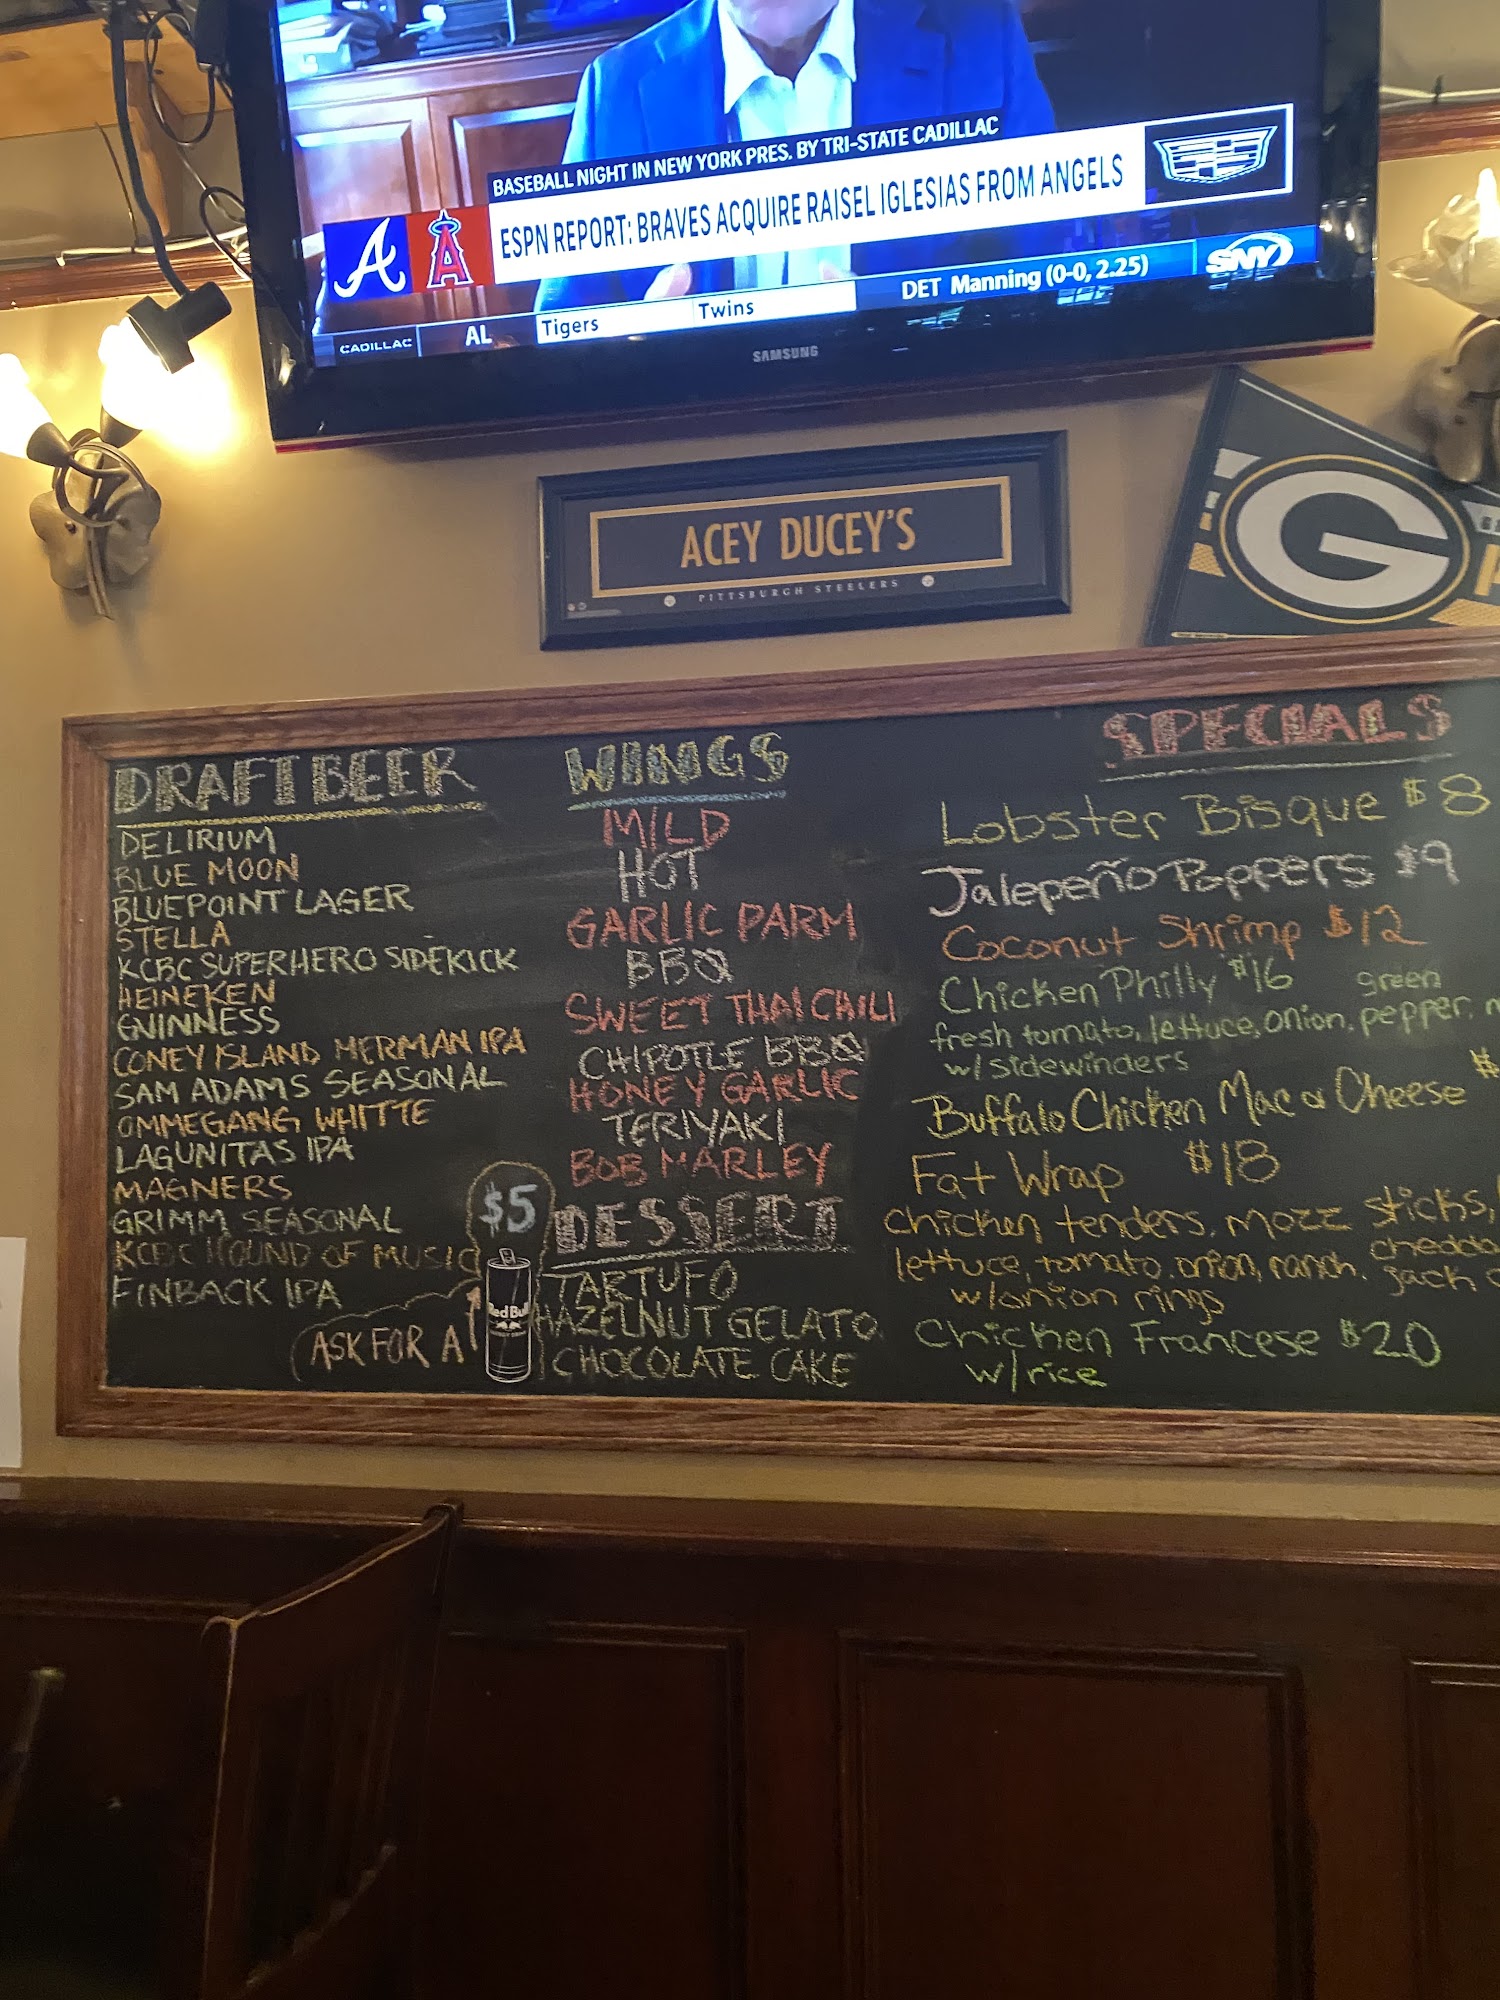 BASEBALL NIGHT IN NEW YORK PRES. BY TRI-STATE CADILLAC
ESPN REPORT: BRAVES ACQUIRE RAISEL IGLESIAS FROM ANGELS
A
A
CADILLAC
AL
Tigers
Twins
DET Manning (0-0, 2.25)
SNY
SAMSUNG
ACEY DUCEY'S
PITTSBURGH STEELERS
G
DRAFT BEER
DELIRIUM
BLUE MOON
BLUEPOINT LAGER
STELLA
KCBC SUPERHERO SIDEKICK
HEINEKEN
GUINNESS
CONEY ISLAND MERMAN IPA
SAM ADAMS SEASONAL
OMMEGANG WHITTE
LAGUNITAS IPA
MAGNERS
GRIMM SEASONAL
KCBC HOUND OF MUSIC
FINBACK IPA
$5
ASK FOR A
Red Bull
WINGS
MILD
HOT
GARLIC PARM
BBQ
SWEET THAI CHILI
CHIPOTLE BBQ
HONEY GARLIC
TERIYAKI
BOB MARLEY
DESSERT
TARTUFO
HAZELNUT GELATO
CHOCOLATE CAKE
SPECIALS
Lobster Bisque $8
Jalepeño Poppers $9
Coconut Shrimp $12
Chicken Philly $16
fresh tomato, lettuce, onion, green pepper,
w/sidewinders
Buffalo Chicken Mac & Cheese $
Fat Wrap $18
chicken tenders, mozz sticks,
lettuce, tomato, onion, ranch, jack
w/onion rings
Chicken Francese $20
w/rice